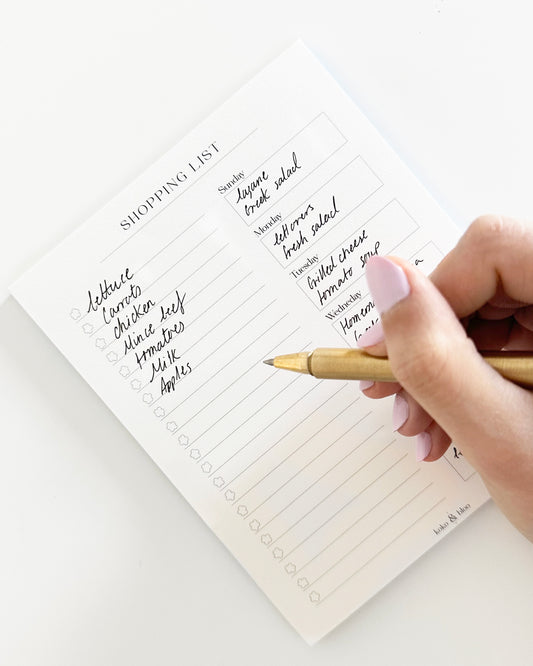 SHOPPING LIST
lettuce
Carrots
chicken
Mince beef
tomatoes
Milk
Apples
Sunday
lazane
Greek salad
Monday
leftovers
fresh salad
Tuesday
Grilled cheese
tomato soup
Wednesday
koko & bloo